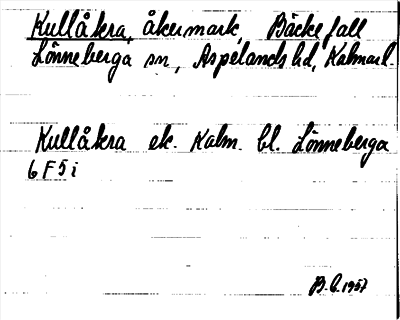 Kullåkra, åkermark, Bäckefall
Lönneberga sn, Aspelands hd, Kalmar l.
Kullåkra ek. Kalm. bl. Lönneberga
6 F 5 i
B.C. 1957